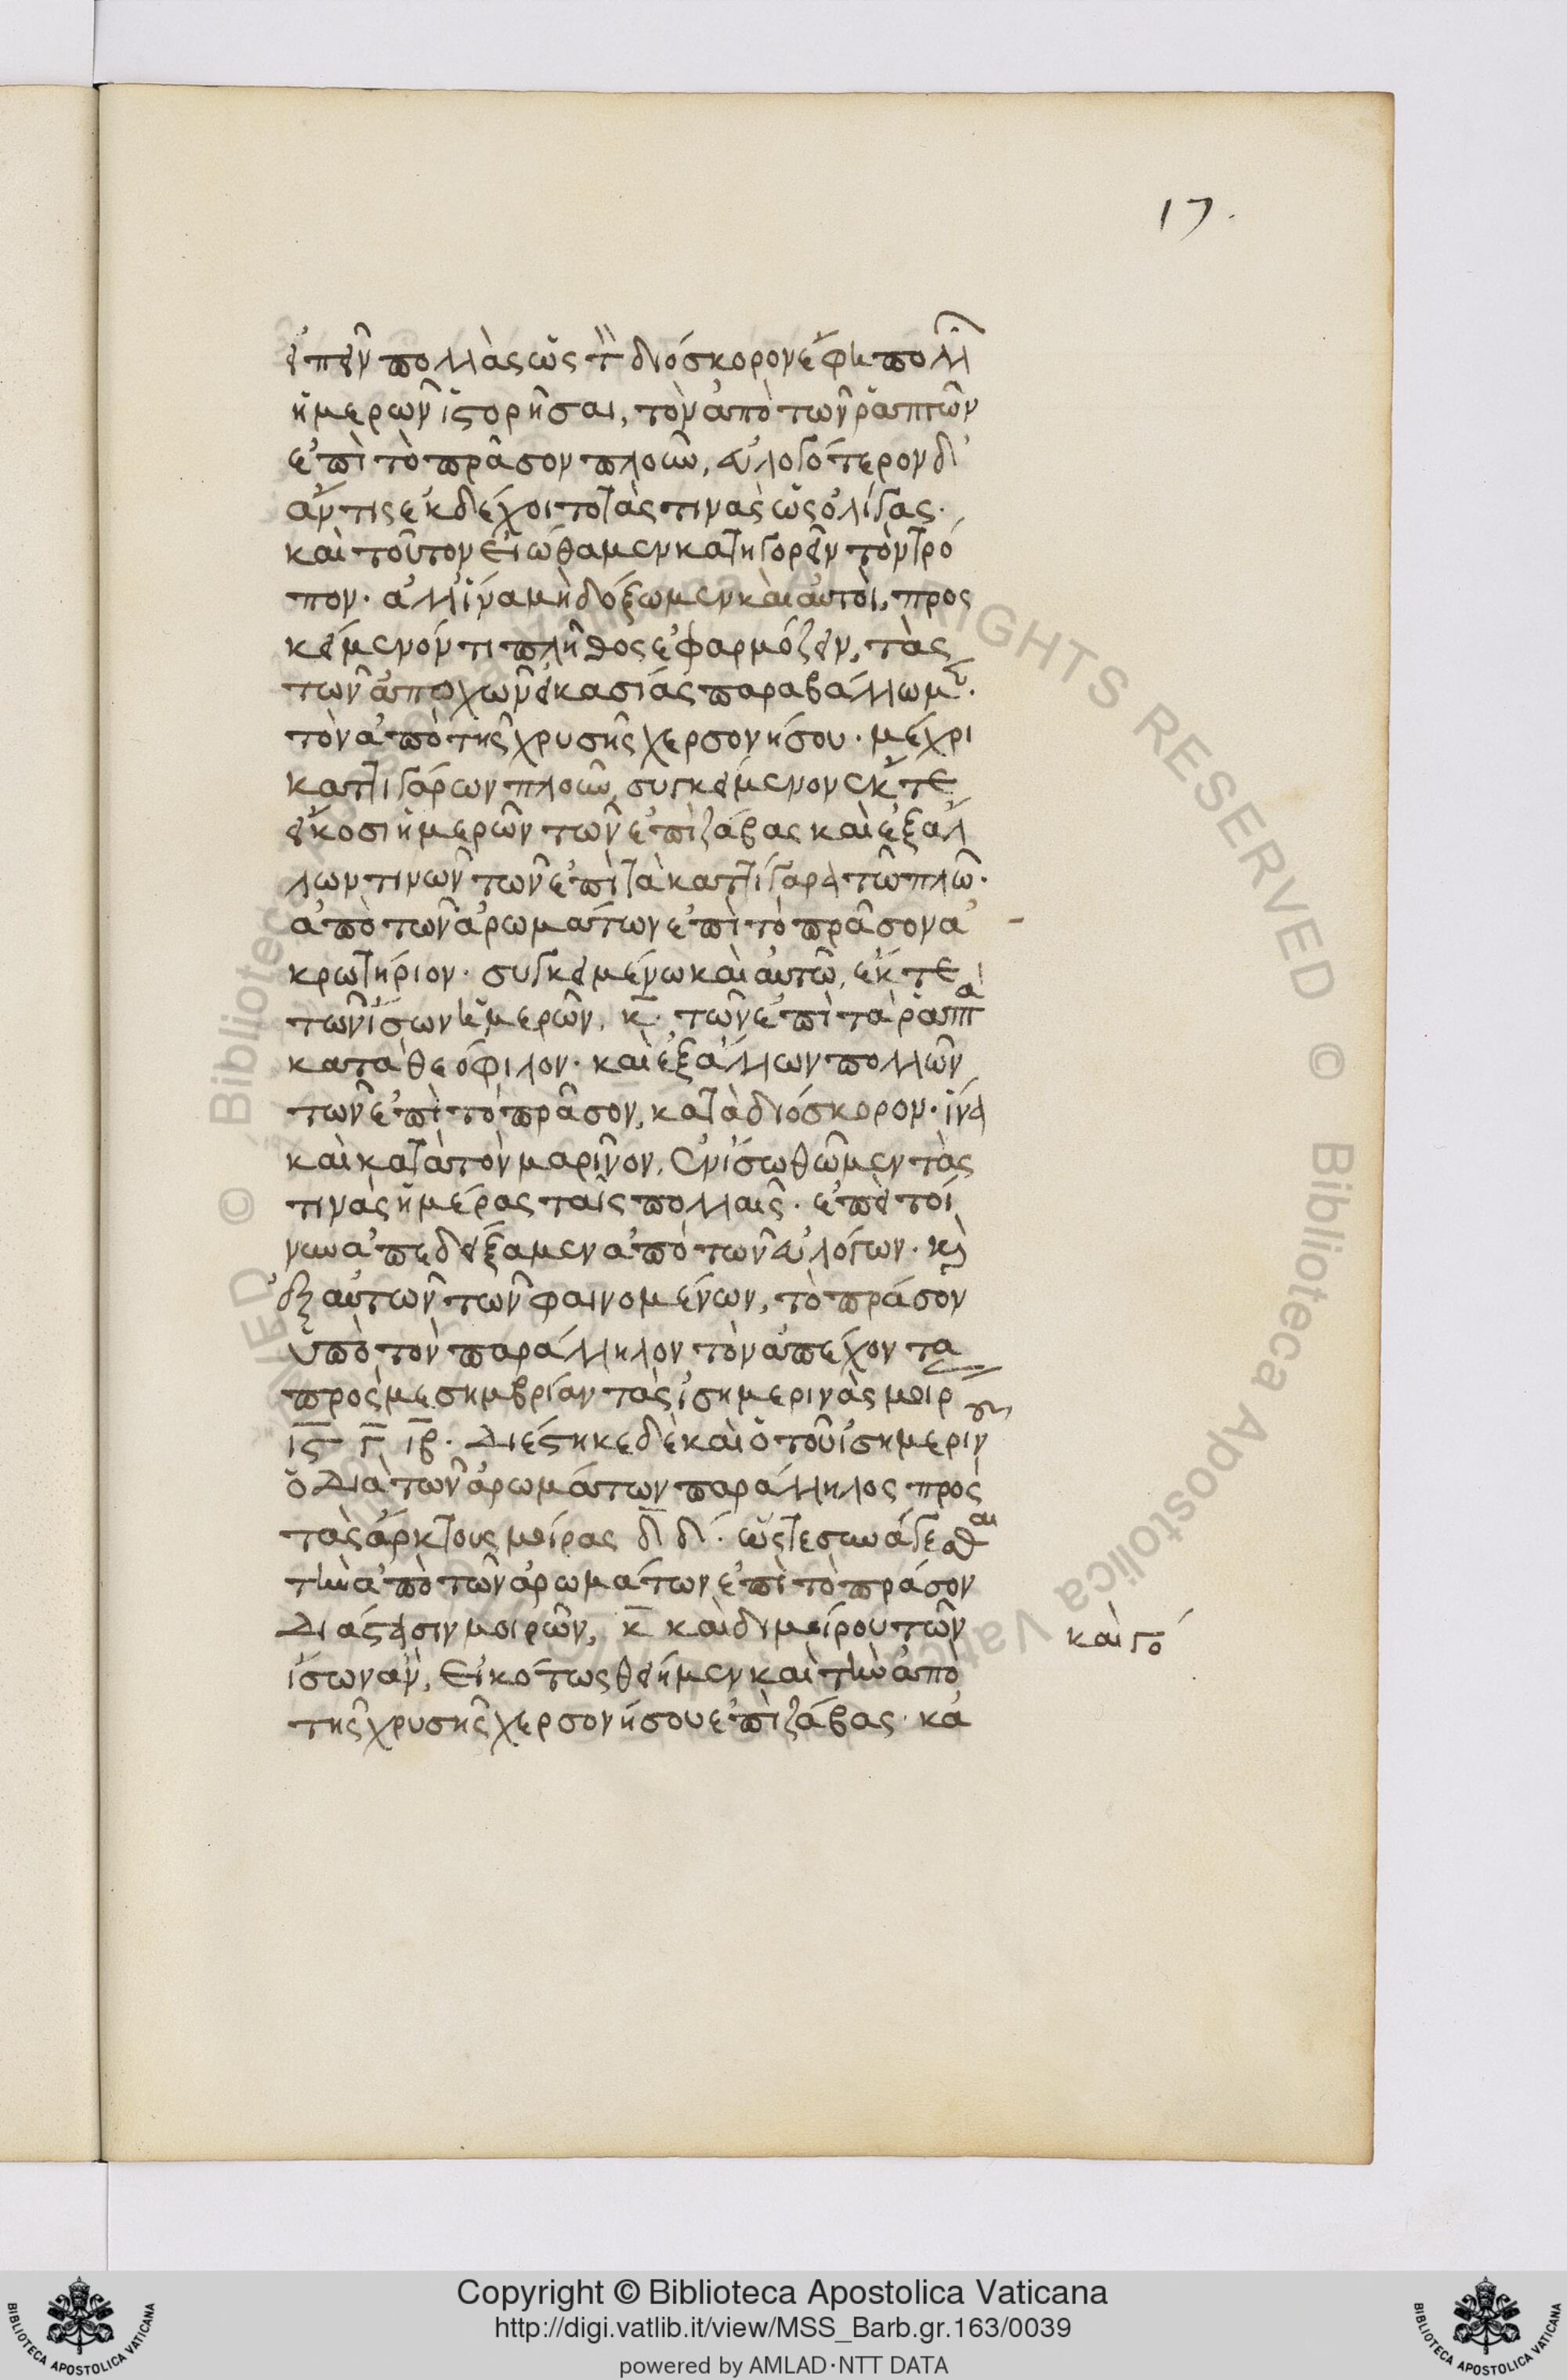 17.
εἰπεῖν πολλὰς ὡς τὸν διόσκορον ἔφη πολλῶν
ἡμερῶν ἱστορῆσαι, τὸν ἀπὸ τῶν ῥάπτων
ἐπὶ τὸ πρᾶσον πλοῦν, εὐλογώτερον δ'
ἄν τις ἐκδέχοιτο τὰς τινὰς ὡς ὀλίγας.
καὶ τοῦτον εἰώθαμεν κατηγορεῖν τὸν τρό
πον. ἀλλ' ἵνα μὴ δόξωμεν καὶ αὐτοὶ, προς
κείμενόν τι πλῆθος ἐφαρμόζειν, τὰς
τῶν ἀποχῶν εἰκασίας παραβάλλωμεν.
τὸν ἀπὸ τῆς χρυσῆς χερσονήσου. μέχρι
καττιγάρων πλοῦν, συγκείμενον ἔκ τε
εἴκοσι ἡμερῶν τῶν ἐπὶ ζάβας καὶ ἐξ ἄλ
λων τινῶν τῶν ἐπὶ τὰ καττίγαρα τῷ πλῷ.
ἀπὸ τῶν ἀρωμάτων ἐπὶ τὸ πρᾶσον ἀ
κρωτήριον. συγκειμένω καὶ αὐτῶ, ἐκ τε
τῶν ἴσων ἡμερῶν, κ̅. τῶν ἐπὶ τὰ ῥάπτα
κατὰ θεόφιλον. καὶ ἐξ ἄλλων πολλῶν
τῶν ἐπὶ τὸ πρᾶσον, κατὰ διόσκορον. ἵνα
καὶ κατὰ τὸν μαρῖνον, ἐνισωθῶμεν τὰς
τινὰς ἡμέρας ταῖς πολλαῖς. ἐπεὶ τοί
νυν ἀπεδείξαμεν ἀπὸ τῶν εὐλόγων. καὶ
ἐξ αὐτῶν τῶν φαινομένων, τὸ πράσον
ὑπὸ τὸν παράλληλον τὸν ἀπέχοντα
πρὸς μεσημβρίαν τὰς ἰσημερινὰς μοίρ
ι̅ς̅ γ̅ ι̅β̅. Διέστηκε δὲ καὶ ὁ τοῦ ἰσημεριν
ὁ Διὰ τῶν ἀρωμάτων παράλληλος πρὸς
τὰς ἄρκτους μοίρας δ̅ δ'. ὥστε συνάγεσθαι
τὴν ἀπὸ τῶν ἀρωμάτων ἐπὶ τὸ πράσον
Διάστασιν μοιρῶν, κ̅ καὶ διμοίρου τῶν
ἴσων ἂν, Εἰκότως θείημεν καὶ τὴν ἀπὸ
τῆς χρυσῆς χερσονήσου ἐπὶ ζάβας. κἀ
καὶ γο
Copyright © Biblioteca Apostolica Vaticana
http://digi.vatlib.it/view/MSS_Barb.gr.163/0039
powered by AMLAD·NTT DATA